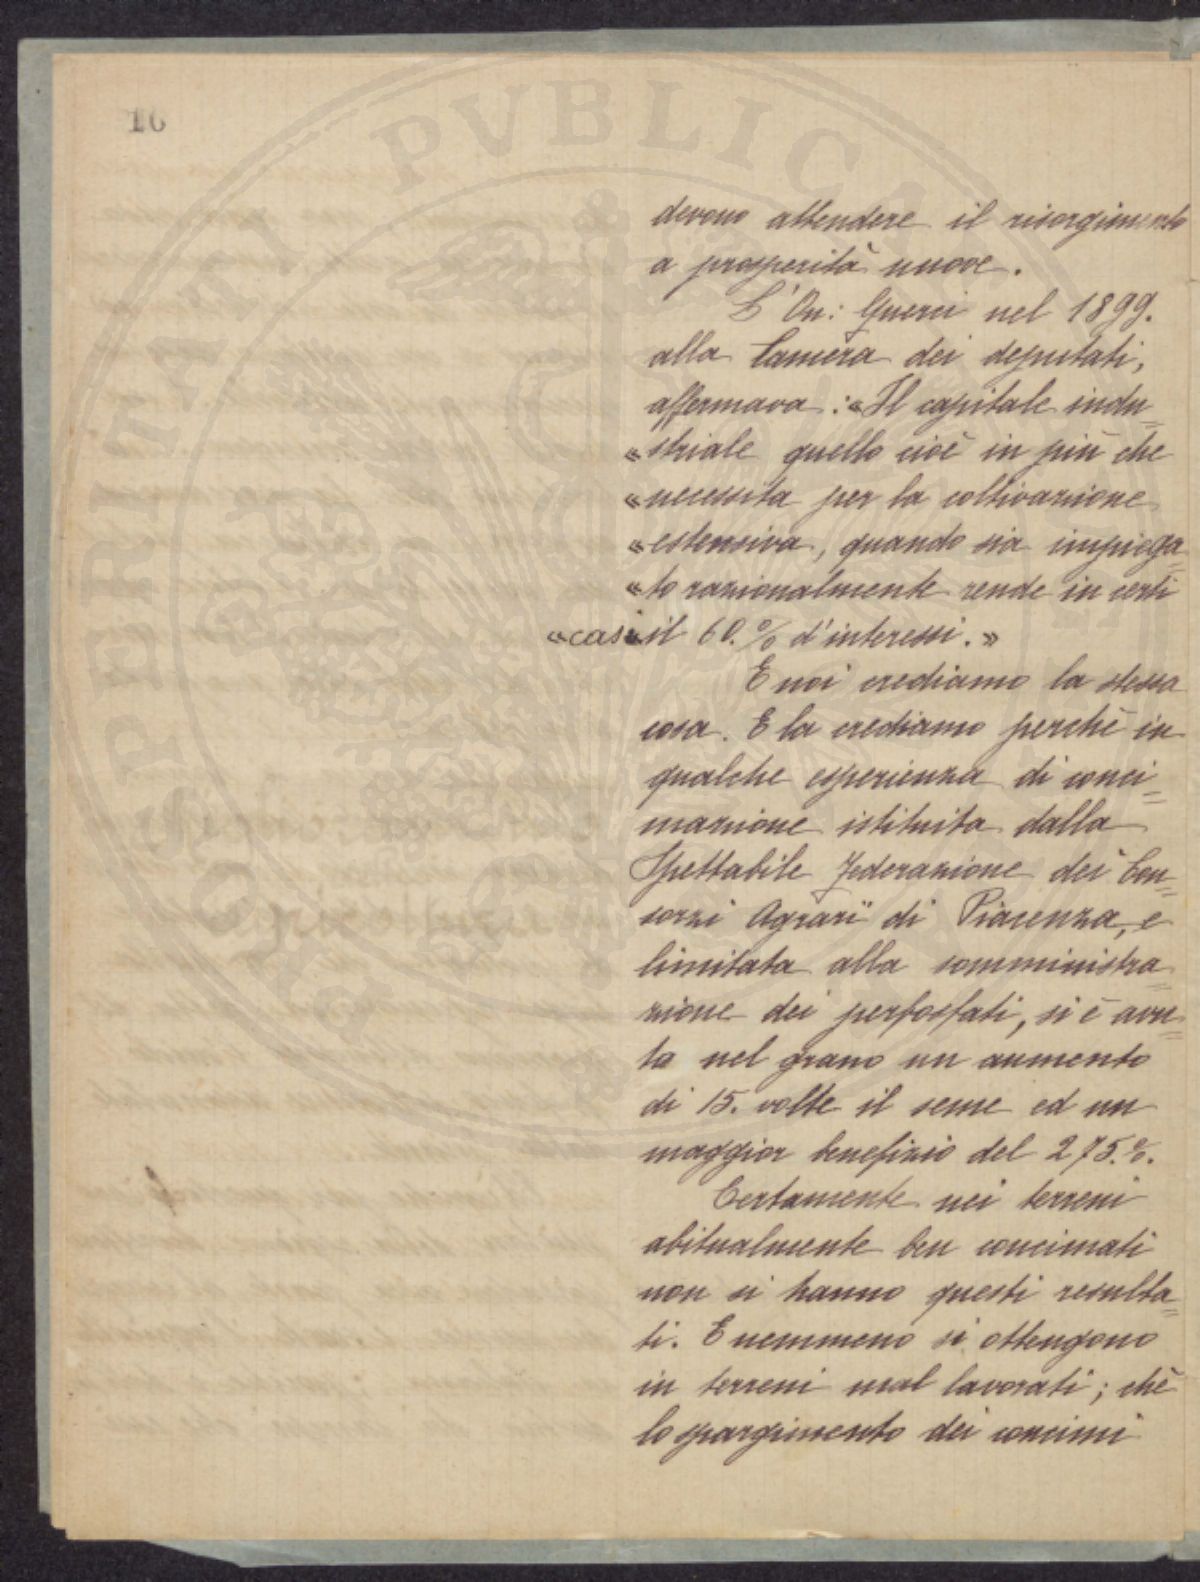 16
devono attendere il risorgimento
a prosperità nuove.
L'On: Guerci nel 1899.
alla Camera dei deputati,
affermava: «Il capitale indu=
«striale quello cioè in più che
«necessita per la coltivazione
«estensiva, quando sia impiega=
«to razionalmente rende in certi
«casi il 60.% d'interessi.»
E noi crediamo la stessa
cosa. E la crediamo perchè in
qualche esperienza di conci=
mazione istituita dalla
Spettabile Federazione dei Con=
sorzi Agrarii di Piacenza, e
limitata alla somministra=
zione dei perfosfati, si è avu=
to nel grano un aumento
di 15. volte il seme ed un
maggior benefizio del 275.%.
Certamente nei terreni
abitualmente ben concimati
non si hanno questi resulta=
ti. E nemmeno si ottengono
in terreni mal lavorati; chè
lo spargimento dei concimi
PVBLICAE